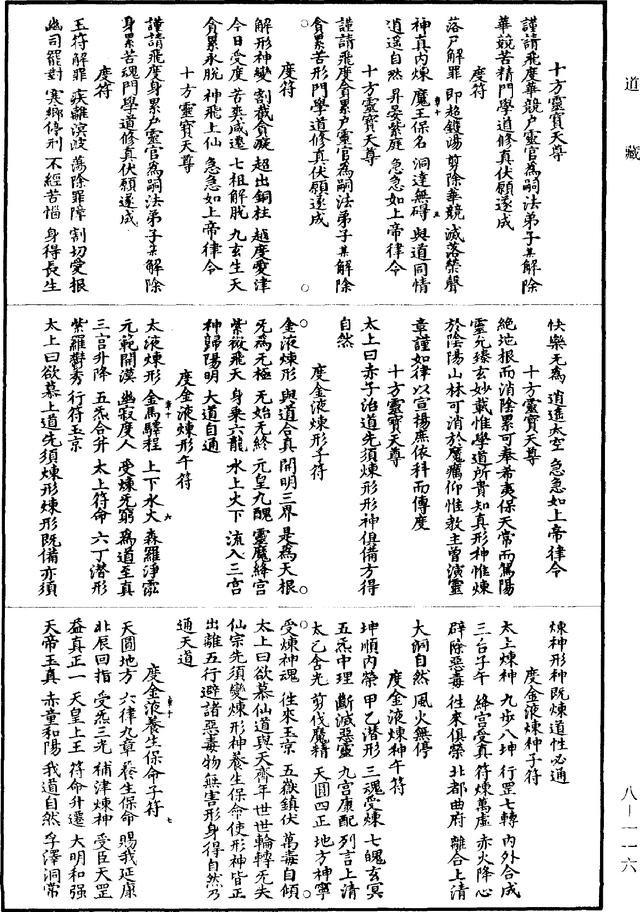 道藏
十方靈寶天尊
謹請飛度華競戶靈官為嗣法弟子某解除
華競苦精門學道修真伏願遂成
度符
落尸解罪 即超鑊湯 剪除華競 滅落榮聲
神真內煉 魔王保名 洞達無礙 與道同情
逍遥自然 昇晏紫庭 急急如上帝律令
十方靈寶天尊
謹請飛度貪累戶靈官為嗣法弟子某解除
貪累苦形門學道修真伏願遂成
度符
解形神變 割截貪 超出銅柱 越度愛津
今日受度 苦爽咸遷 七祖解脫 九玄生天
貪累永脫 神飛上仙 急急如上帝律令
十方靈寶天尊
謹請飛度身累戶靈官為嗣法弟子某解除
身累苦魂門學道修真伏願遂成
度符
玉符解罪 疾離溟波 蕩除罪障 割切受根
幽司罷對 寒鄉停刑 不經苦惱 身得長生
快樂无為 逍遥太空 急急如上帝律令
十方靈寶天尊
絶地根而消陰累可奉希夷保天常而篤陽
靈允臻玄妙載惟學道所貴知真形神惟煉
於陰陽山林可消於魔癘仰惟教主曾演靈
章謹如律以宣揚庶依科而傳度
十方靈寶天尊
太上曰赤子治道先須煉形形神俱備方得
自然
度金液煉形子符
金液煉形 與道合真 開明三界 是為天根
旡為旡極 无始无終 元皇九醜 靈魔絳宮
紫薇飛天 身乘六龍 水上火下 流入三宮
神歸陽明 大道自通
度金液煉形午符
太液煉形 金馬驛程 上下水火 森羅淨
元範開漠 幽寂度人 受煉无窮 為道至真
三宮升降 五炁合升 太上符命 六丁潜形
紫羅鬱秀 行符玉京
太上曰欲慕上道先須煉形煉形既備亦須
煉神形神既煉道性必通
度金液煉神子符
太上煉神 九步八坤 行罡七轉 內外合成
三台子午 絳宮受真 符煉萬虛 赤火降心
辟除惡毒 往來俱榮 北都曲府 離合上清
大洞自然 風火無停
度金液煉神午符
坤順內榮 甲乙潜形 三魂受煉 七魄玄冥
五炁中理 斷滅惡靈 九宮康配 列言上清
太乙含光 剪伐魔精 天圓四正 地方神寧
受煉神魂 往來玉京 五嶽鎮伏 萬毒自傾
太上曰欲慕仙道與天齊年世世輪轉旡失
仙宗先須變煉形神養生保命使形神皆正
出離五行避諸惡毒物無害形身得自然乃
通天道
度金液養生保命子符
天圓地方 六律九章 養生保命 賜我延康
北辰回指 受炁三光 補津煉神 受臣天罡
益真正一 天皇上王 符命升遷 大明和强
天帝玉真 赤童和陽 我道自然 孚澤洞常
八－一一六